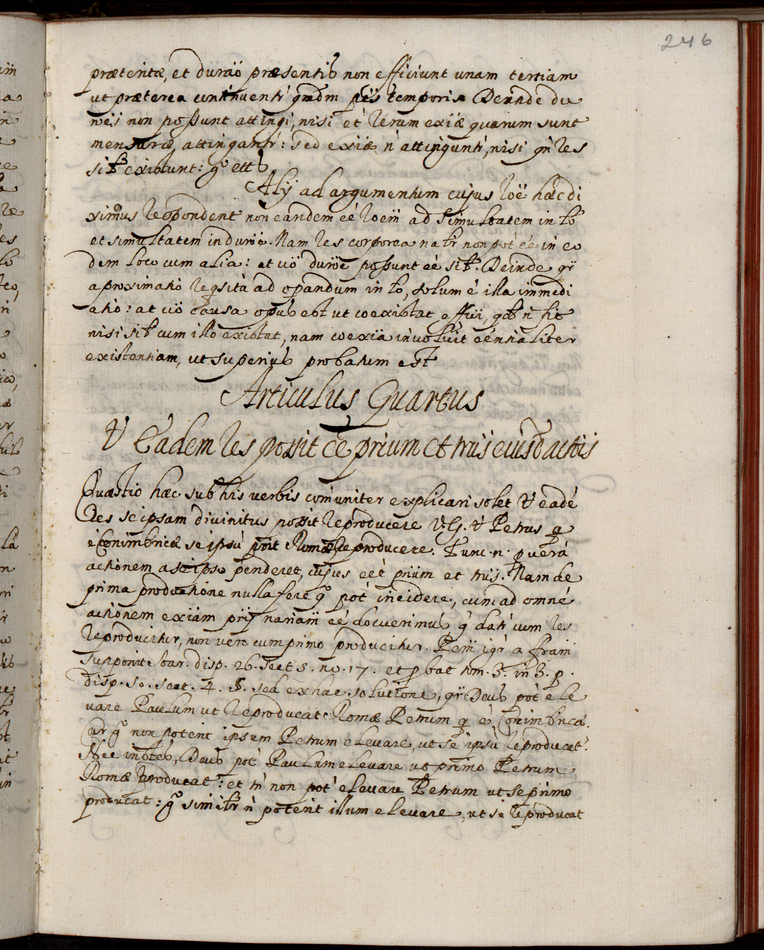 246
præteritæ, et duraõ præsentis non efficiunt unam tertiam
ut præterea continuenti temporis. Deinde du
nes̃ non possunt attingi, nisi et rerum exiæ quarum sunt
mensuræ, attingantr: sed exiæ ñ attinguntr, nisi qñ res
existunt: gº
Alij ad argumentum cujus roẽ hæc di
ximus respondent non eandem eẽ roem ad simultatem in lo
et simultatem in durõe. Nam res corporea natr non pot eẽ in eo
dem loco cum alia: at uõ durõe possunt eẽ sil. Deinde qr
aproximatio reqsita ad opandum in lo, solum é illa immedi
atio: at uõ causa opus est ut coexistat effui, qd ñ fit
nisi sil cum illo existat, nam coexia involuit eẽntialiter
existentiam, ut superius probatum est
Articulus Quartus
V Eadem res possit eẽ prium et trũs eiusd actiõis
Quæstio hæc sub his verbis comuniter explicari solet V eadẽ
res seipsam divinitus possit reproducere V.g. V Petrus q
é Conimbricæ seipsũ possit Romæ reproducere. Tunc n. p uerã
actionem a seipso penderet, cujus eẽt prium et trũs. Nam de
prima productione nulla fore qº pot incidere, cum ad omnẽ
actionem exiam
reproducitur, non vero cum primo producitur.
supponit Soar. disp. 26. sect 5. no. 17. et pbat tom. 3. in 3. p.
disp. 50. sect. 4. §. sed ex hac solutione, qr Deus pot ele
vare Paulum ut reproducat Romæ Petrum q é Conimbricæ.
gº non poterit ipsum Petrum elevare, ut se ipsũ reproducat?
Deus pot Paulum elevare ut primo Petrum
Romæ producat: et tñ non pot elevare Petrum ut se primo
producat: gº similr ñ poterit illum elevare, ut se reproducat